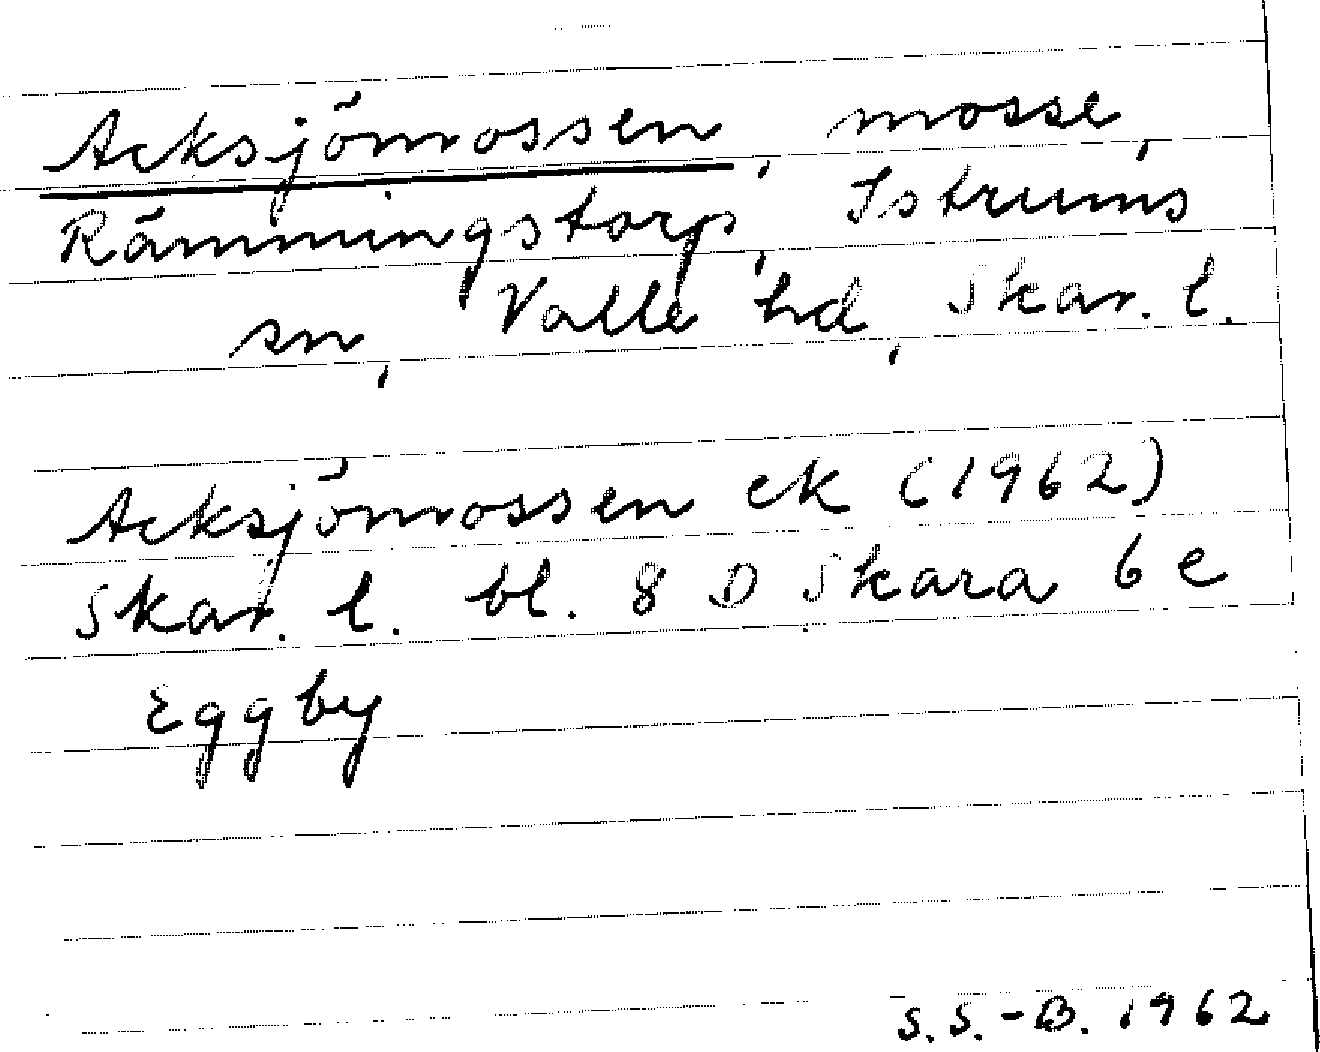 Acksjömossen, mosse,
Rämmingstorp, Istrums
sn, Valle hd, Skar. l.
Acksjömossen ek (1962)
Skar. l. bl. 8 D Skara 6 e
Eggby
S.S.-B. 1962